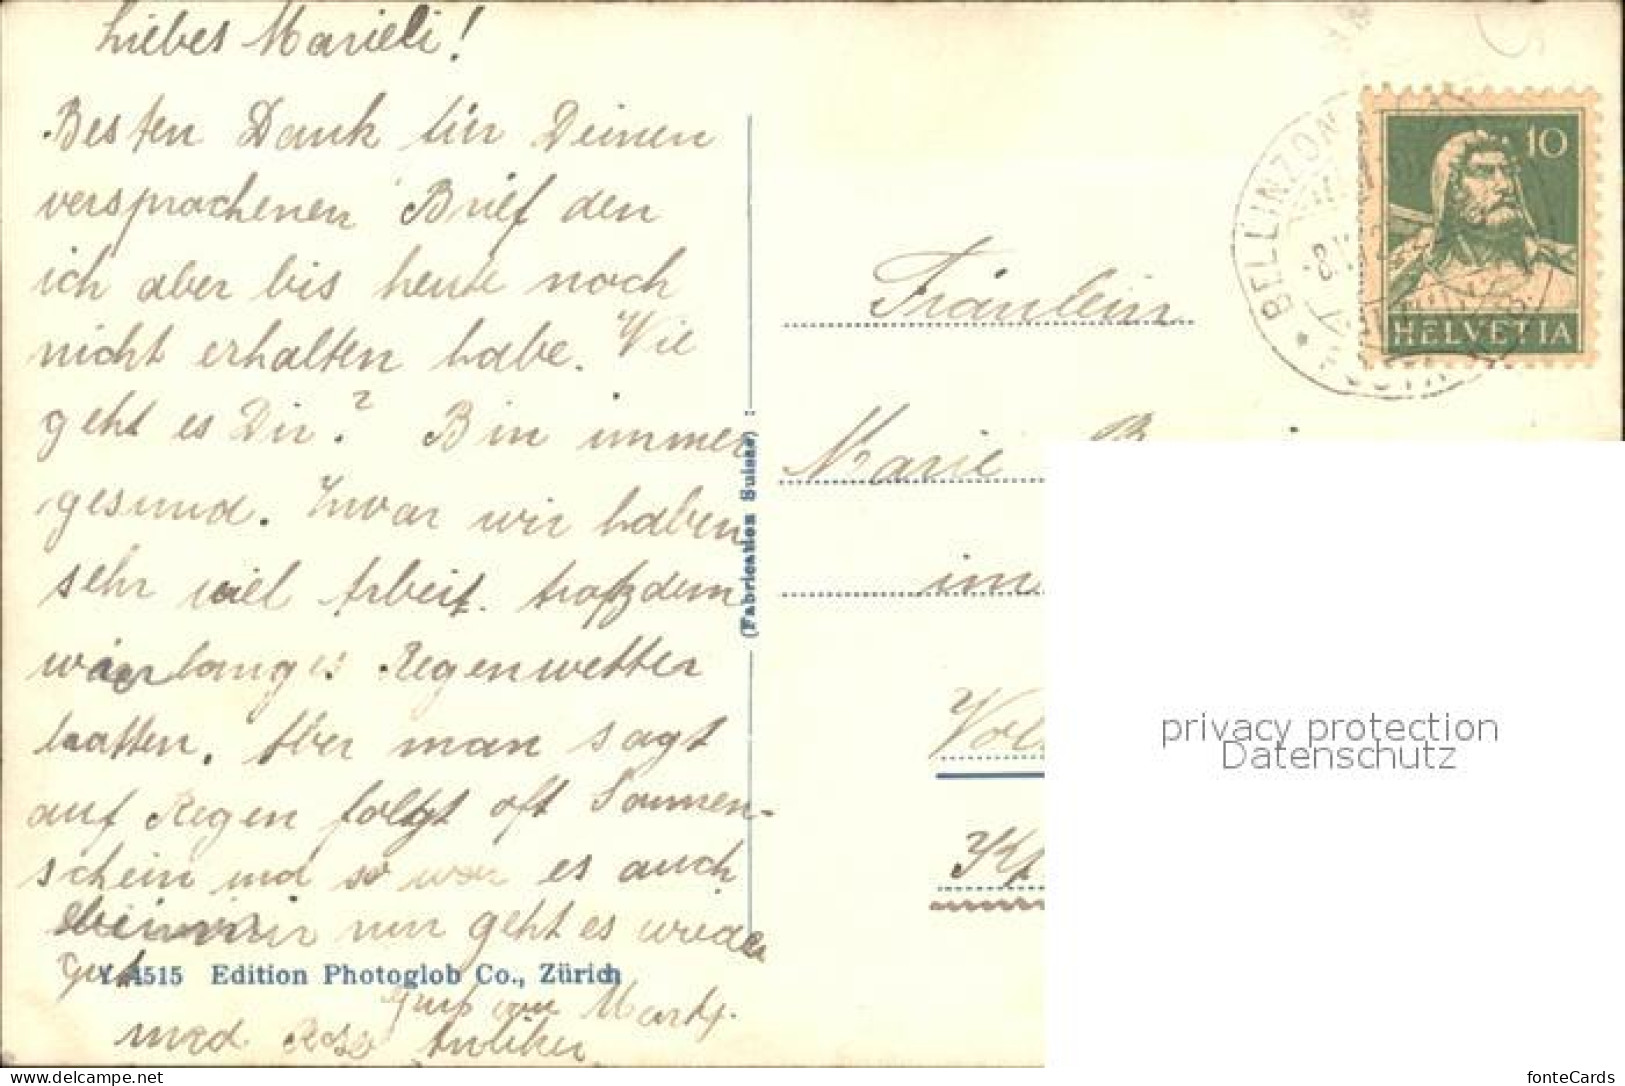 Liebes Marieli!
Besten Dank für Deinen
versprochenen Brief den
ich aber bis heute noch
nicht erhalten habe. Wie
geht es Dir? Bin immer
gesund. Zwar wir haben
sehr viel Arbeit. trotzdem
wir langes Regenwetter
hatten. Aber man sagt
auf Regen folgt oft Sonnen-
schein und so war es auch
bei mir nun geht es wieder
gut
4515 Edition Photoglob Co., Zürich
Gruss von
und Rosa
(Fabrication Suisse)
BELLINZONA
10
HELVETIA
Fräulein
Marie
im
privacy protection
Datenschutz
fonteCards
www.delcampe.net